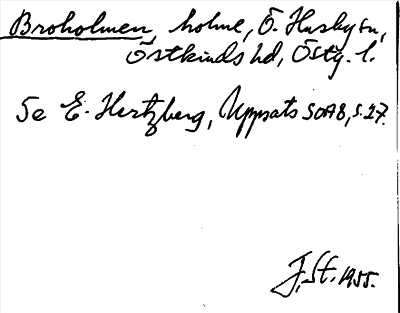 Broholmen, holme, Ö. Husby sn,
Östkinds hd, Östg. l.
Se E. Hertzberg, Uppsats SOAB, s. 27.
J. St. 1955.